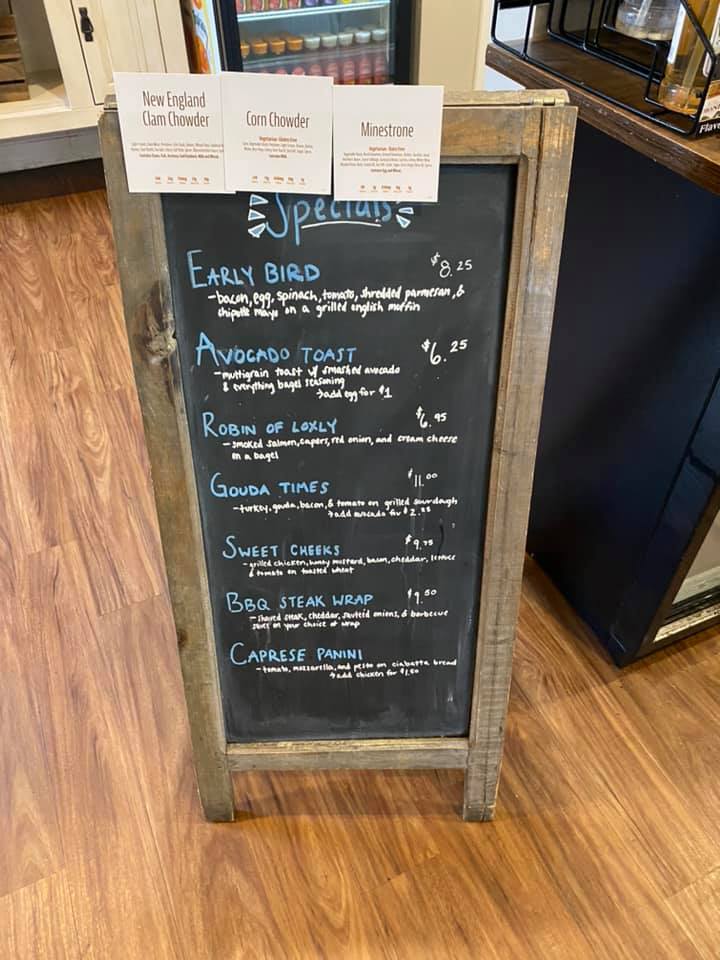 New England
Clam Chowder
Corn Chowder
Vegetarian · Gluten Free
Contains Milk.
Minestrone
Contains Egg and Wheat.
Flavo
Specials
EARLY BIRD $8.25
-bacon, egg, spinach, tomato, shredded parmesan, &
chipotle mayo on a grilled english muffin
AVOCADO TOAST $6.25
-multigrain toast w/ smashed avocado
& everything bagel seasoning
→add egg for $1
ROBIN OF LOXLY $6.95
-smoked salmon, capers, red onion, and cream cheese
on a bagel
GOUDA TIMES $11.00
-turkey, gouda, bacon, & tomato on grilled sourdough
→add avocado for $2.25
SWEET CHEEKS $9.75
-grilled chicken, honey mustard, bacon, cheddar, lettuce
& tomato on toasted wheat
BBQ STEAK WRAP $9.50
-shaved steak, cheddar, sauteed onions, & barbecue
on your choice of wrap
CAPRESE PANINI
-tomato, mozzarella, and pesto on ciabatta bread
→add chicken for $1.50